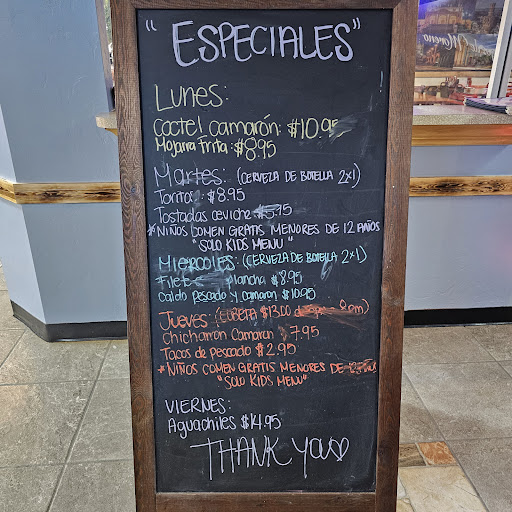 "ESPECIALES"
Lunes:
Coctel camarón: $10.95
Mojarra frita: $8.95
Martes: (CERVEZA DE BOTELLA 2x1)
Torita: $8.95
Tostadas ceviche $5.95
*NIÑOS COMEN GRATIS MENORES DE 12 AÑOS
"SOLO KIDS MENU"
MIERCOLES: (CERVEZA DE BOTELLA 2x1)
Filete plancha $8.95
Caldo pescado y camaron $10.95
Jueves (CUBETA $13.00
Chicharron Camaron $7.95
Tacos de pescado $2.95
*NIÑOS COMEN GRATIS MENORES DE
"SOLO KIDS MENU"
VIERNES:
Aguachiles $14.95
THANK YOU